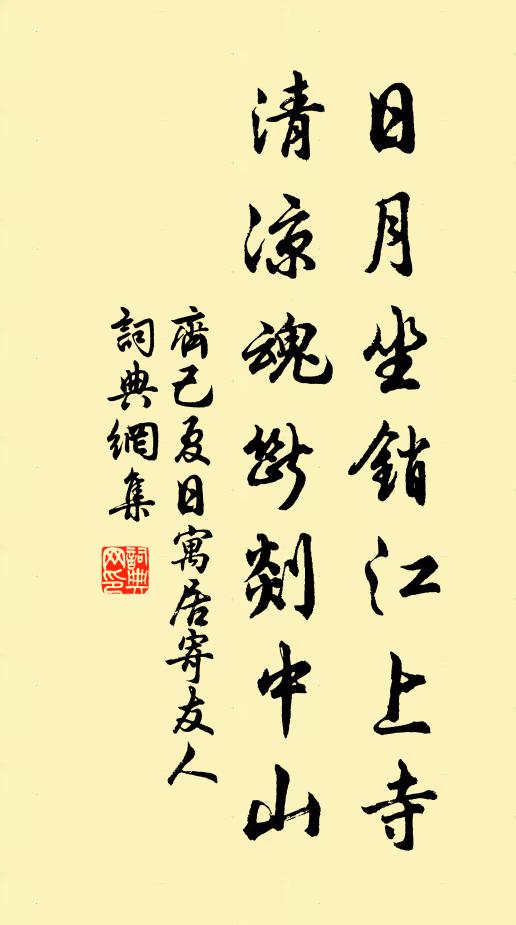 日月坐銷江上寺
清涼魂斷剡中山
齊己夏日寓居寄友人
詞典網集
詞典网印